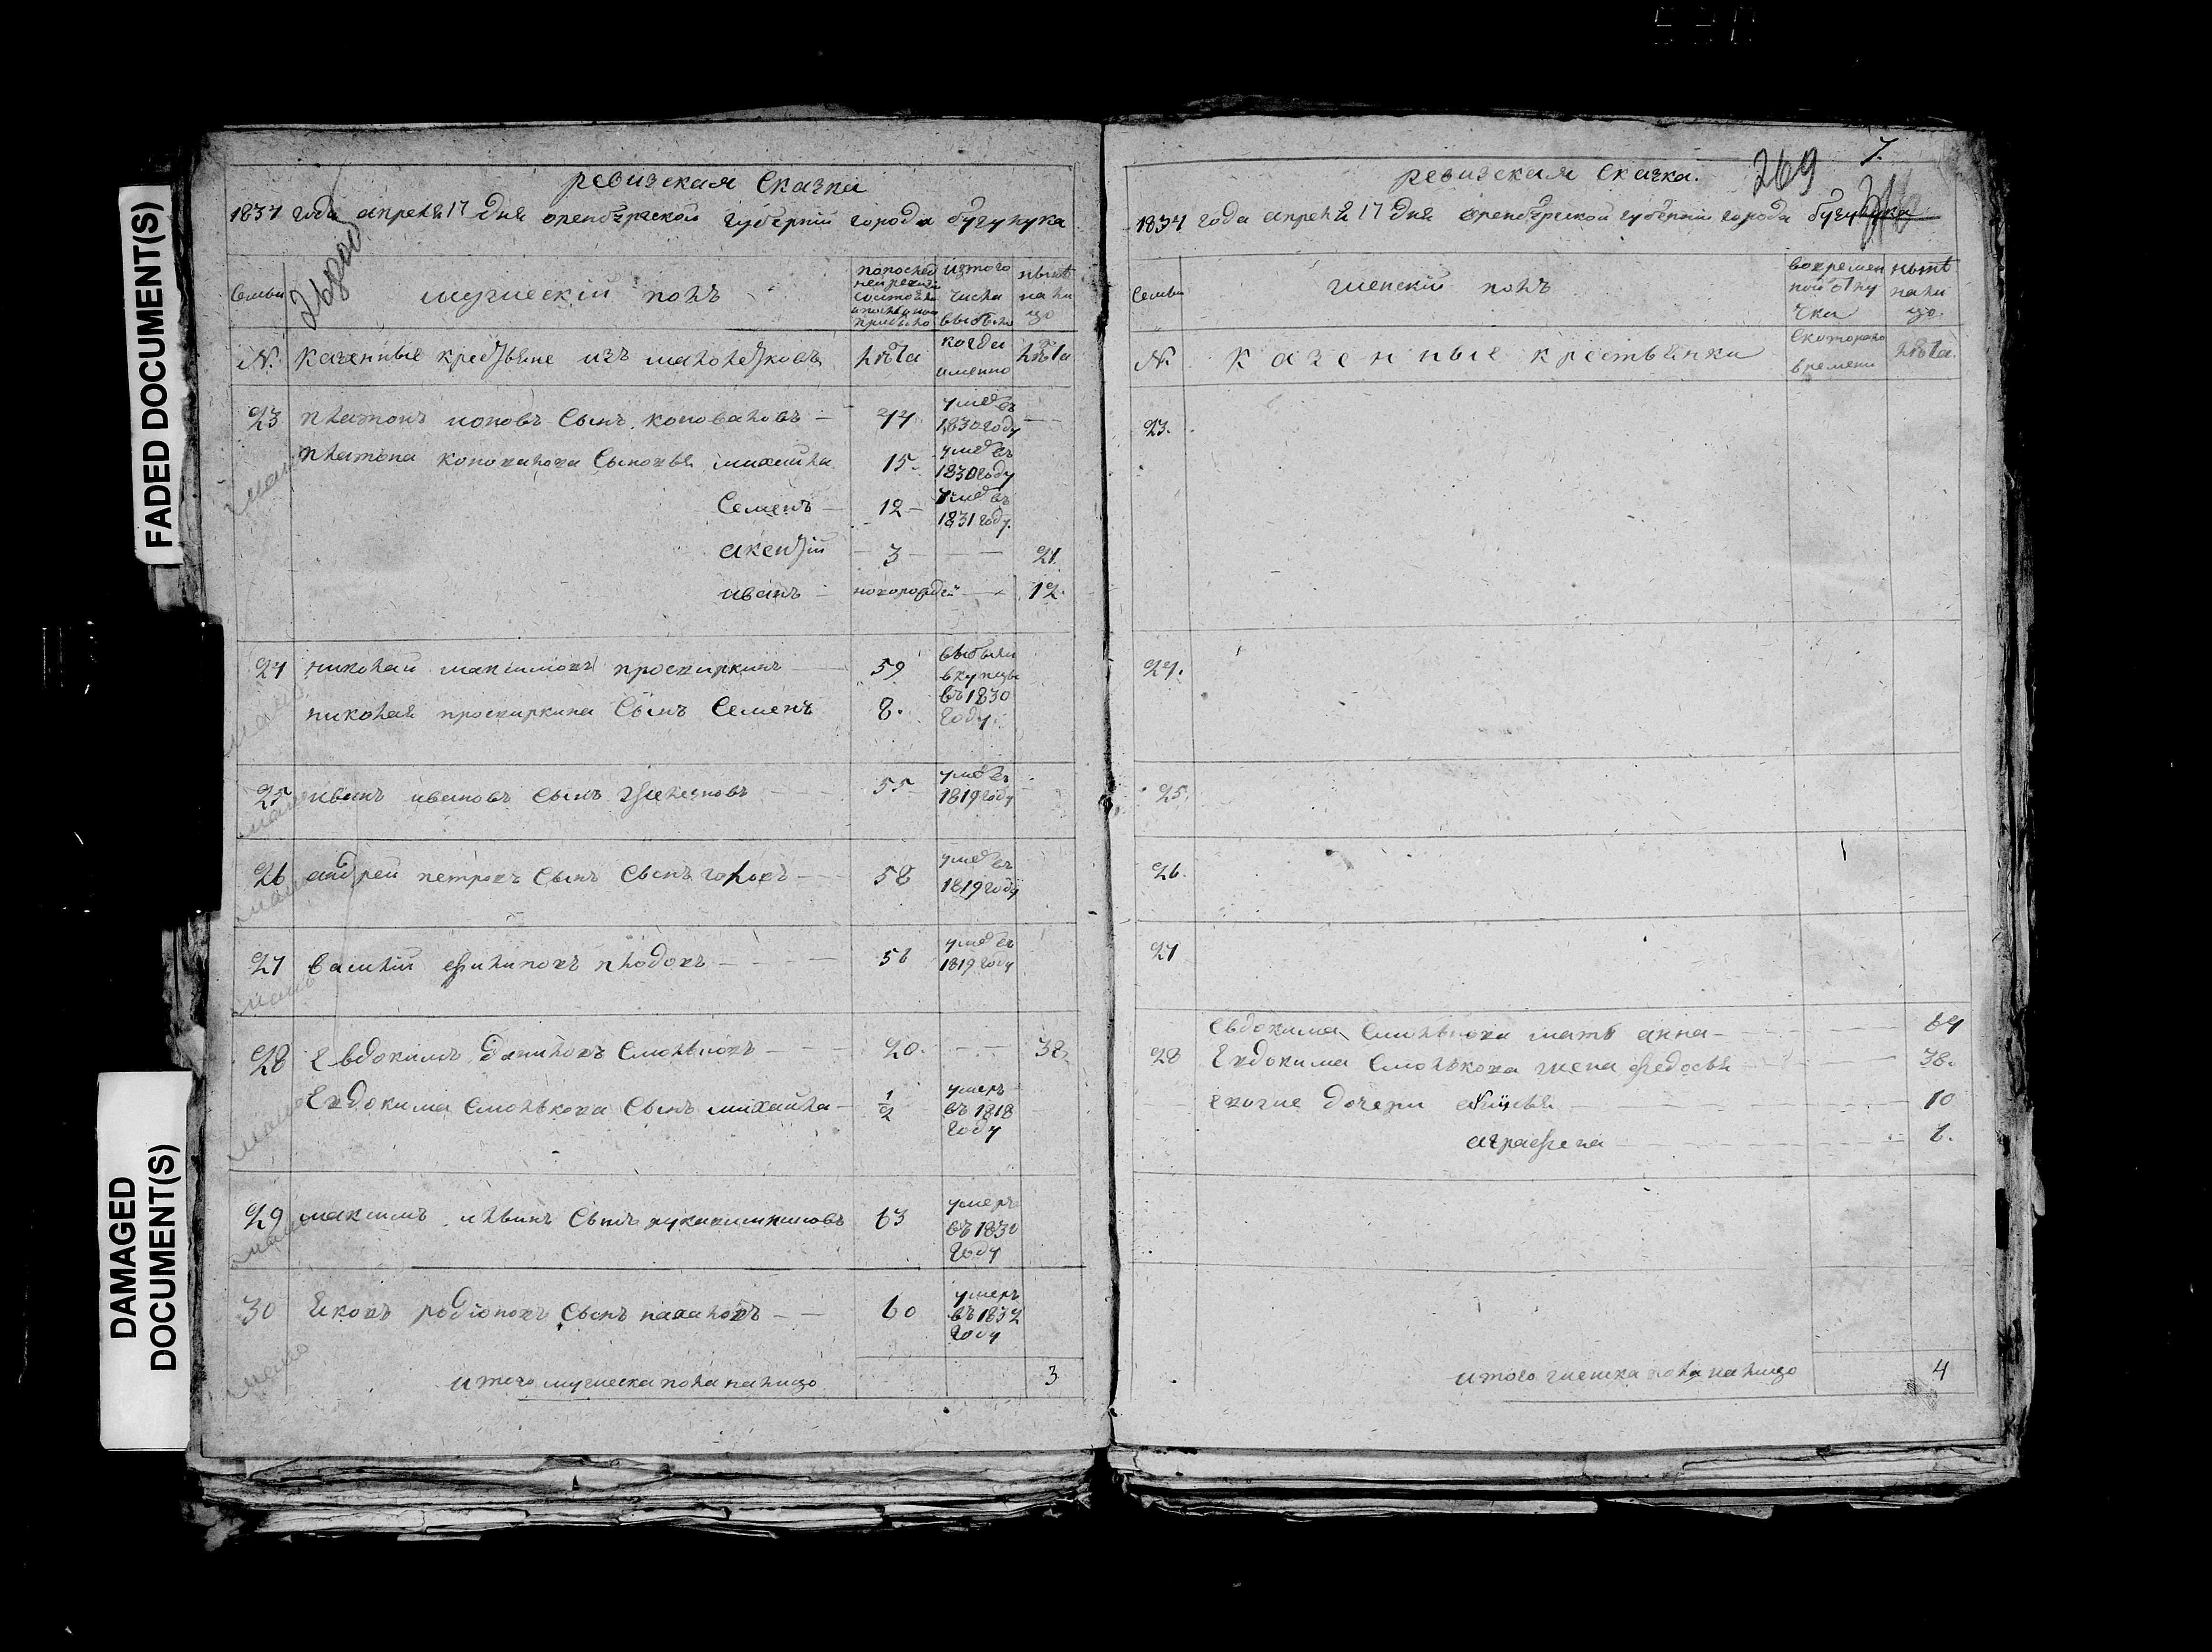 FADED DOCUMENT(S)
DAMAGED DOCUMENT(S)
ревизская Сказка
1834 года апреля 17 дня оренбургской губернiи города бузулука
Семьи
мужескiй полъ
по послед ней ревизiи состояло и после она прибыло
изтого числа выбыло
ныне на ли цо
№
казенные крестьяне изъ малолетковъ
лета
когда именно
лета
23 платонъ ионовъ Сынъ коноваловъ — 44 умеръ въ 1830 году
платона коновалова Сыновья михаила 15 умеръ въ 1830 году
Семенъ 12 умеръ въ 1831 году
3 21
иванъ новорожде — 12
24 николай максимовъ проскиркинъ — 59 выбыли в купцы въ 1830 году
николая проскиркина Сынъ Семенъ 8.
25 иванъ ивановъ Сынъ — 55 умеръ въ 1819 году
26 андрей петровъ Сынъ — 58 умеръ въ 1819 году
27 василiй филиповъ плодовъ — 56 умеръ въ 1819 году
28 Евдокимъ Даниловъ Смольковъ — 20. — 38
Евдокима Смолькова Сынъ михаила — 1/2 умеръ въ 1818 году
29 максимъ Сынъ 63 умеръ въ 1830 году
30 Яковъ родiоновъ Сынъ — 60 умеръ въ 1832 году
итого мужеска пола налицо 3
7.
269
ревизская Сказка.
1834 года апреля 17 дня оренбургской губернiи города бузулука
Семьи
женскiй полъ
вовремен ной отлу чки
ныне на ли цо.
№
казенные крестьянки
скоторого времени
лета.
23.
24.
25.
26.
27
Евдокима Смолькова мать анна — 64
28 Евдокима Смолькова жена федосья — 38.
евогие дочери — 10
аграфена — 6.
итого женска пола налицо 4